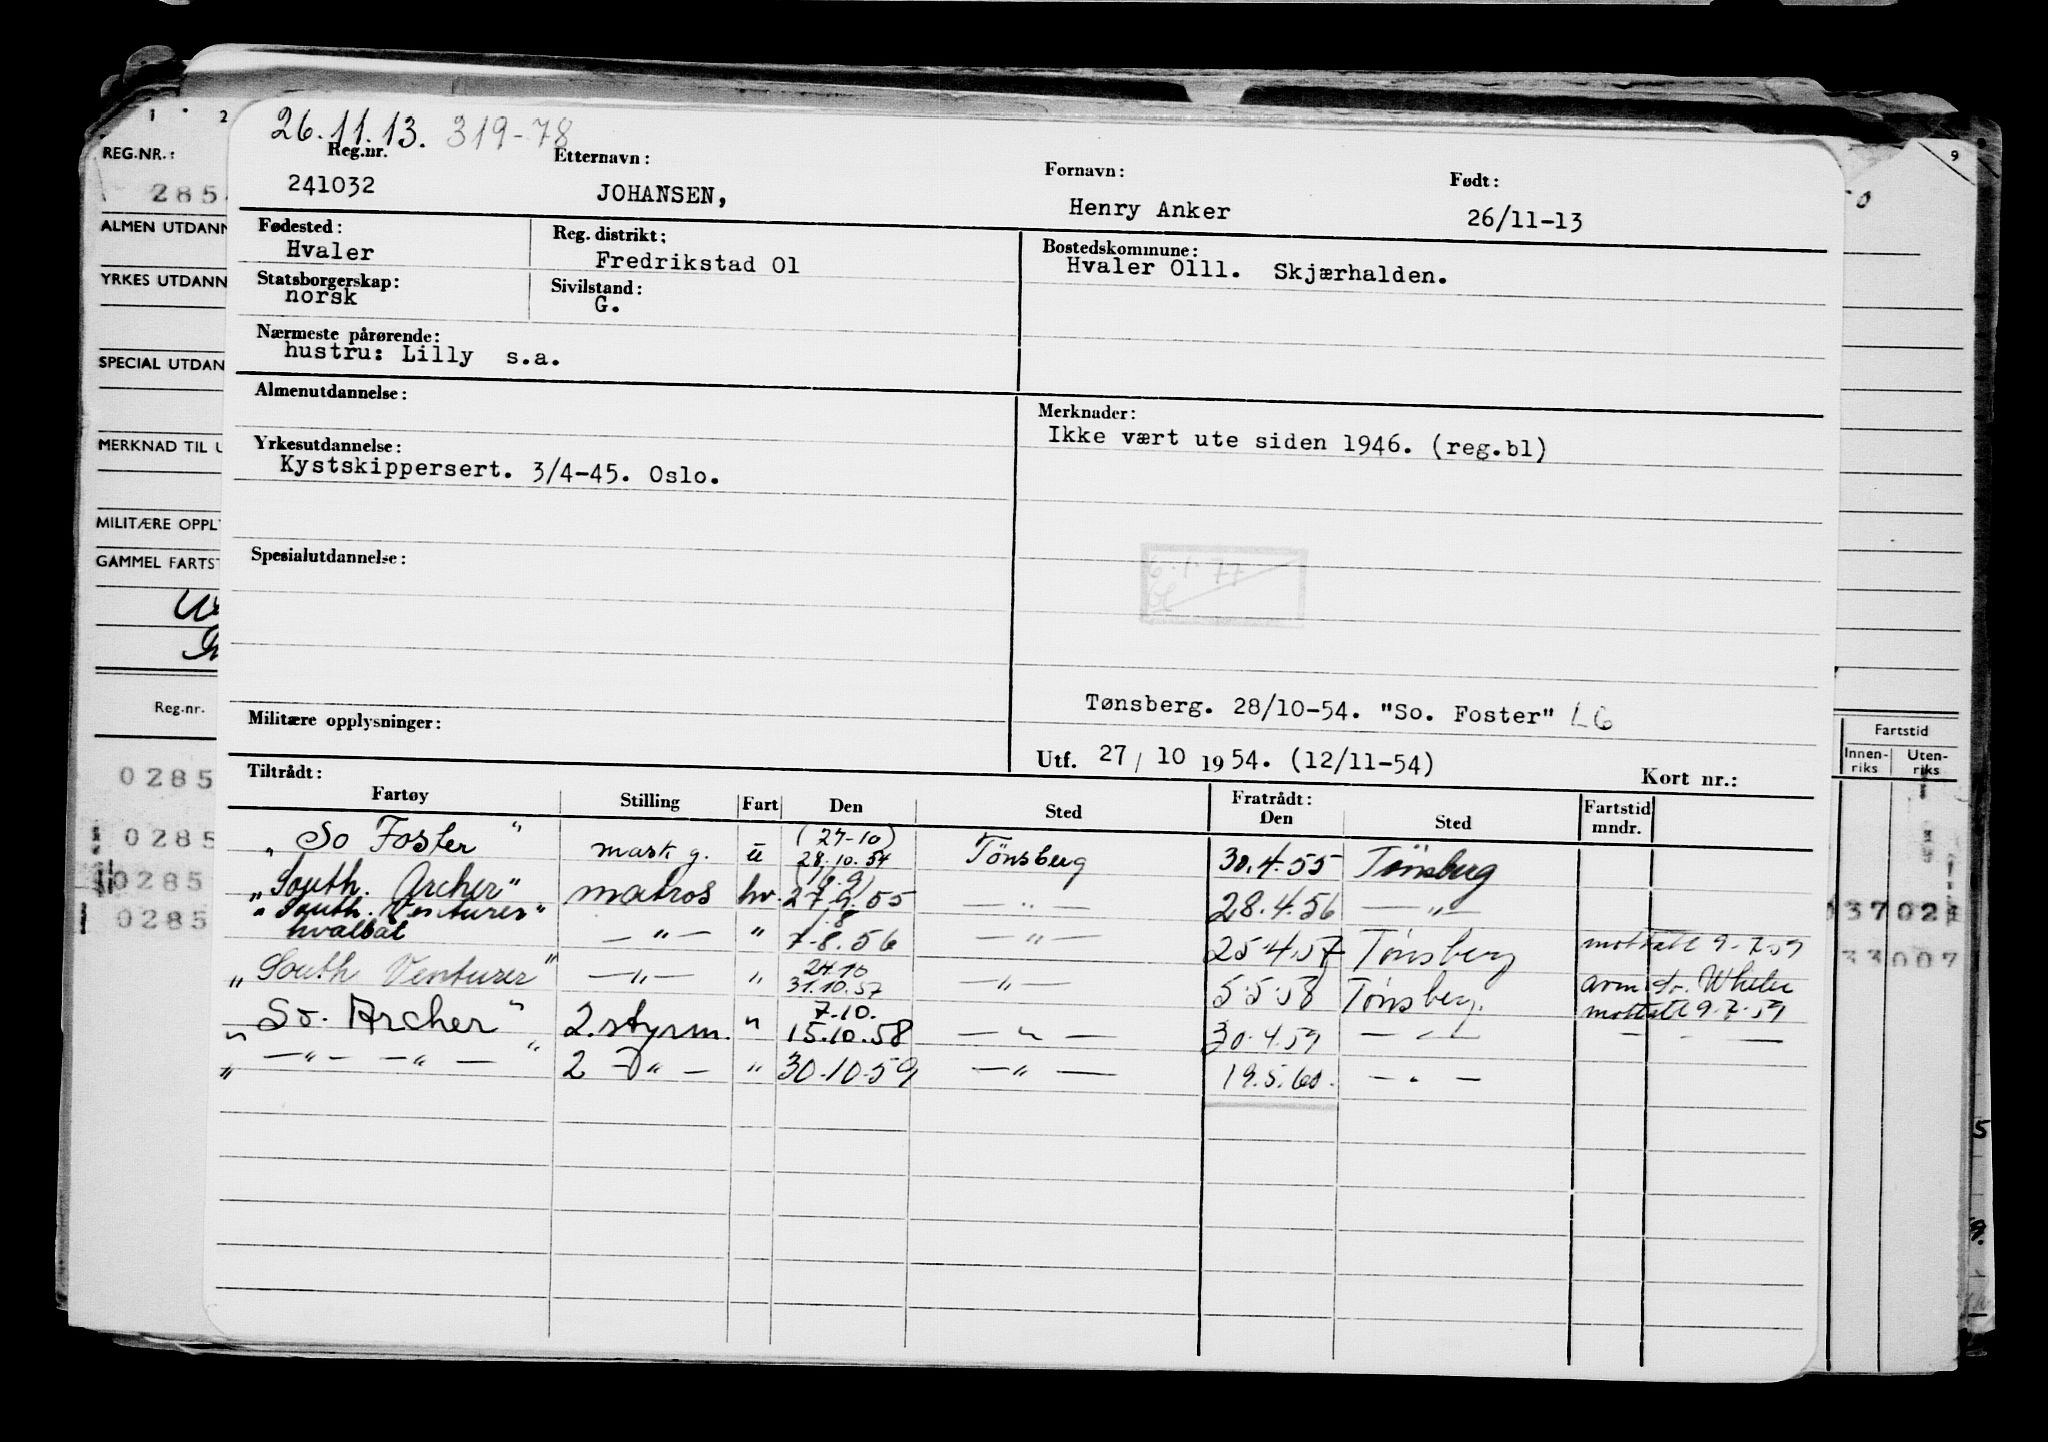 26.11.13. 319-78
Reg.nr. Etternavn: Fornavn: Født:
241032 JOHANSEN, Henry Anker 26/11-13
Fødested: Reg. distrikt: Bostedskommune:
Hvaler Fredrikstad Ol Hvaler Olll. Skjærhalden.
Statsborgerskap: Sivilstand:
norsk G.
Nærmeste pårørende:
hustru: Lilly s.a.
Almenutdannelse: Merknader:
Ikke vært ute siden 1946. (reg.bl)
Yrkesutdannelse:
Kystskippersert. 3/4-45. Oslo.
Spesialutdannelse:
6.1.77
Tønsberg. 28/10-54. "So. Foster" LG
Militære opplysninger:
Utf. 27/10 1954. (12/11-54) Kort nr.:
Tiltrådt: Fratrådt:
Fartøy Stilling Fart Den Sted Den Sted Fartstid mndr.
(27-10)
"So Foster" mask g. u 28.10.54 Tönsberg 30.4.55 Tönsberg
"South. Archer" matros hv. 27.9.55 — " — 28.4.56 — " —
"South. Venturer" hvalbåt — " — " 7-8.56 — " — 25.4.57 Tönsberg mottatt 9.7.59
24.10
"South Venturer" — " — " 31.10.57 — " — 5.5.58 Tönsberg.
mottatt 9.7.59
7.10.
"So. Archer" 2. styrm. " 15.10.58 — " — 30.4.59 — " — — " —
" — " — — " — " 2 — " — " 30.10.59 — " — 19.5.60. — " —
1 2 9
REG.NR.:
285
ALMEN UTDANN
YRKES UTDANN
SPECIAL UTDAN
MERKNAD TIL U
MILITÆRE OPPL
GAMMEL FARTST
Reg.nr.
0285
0285
0285
0285
Fartstid
Innen-riks Uten-riks
37 02
33 007